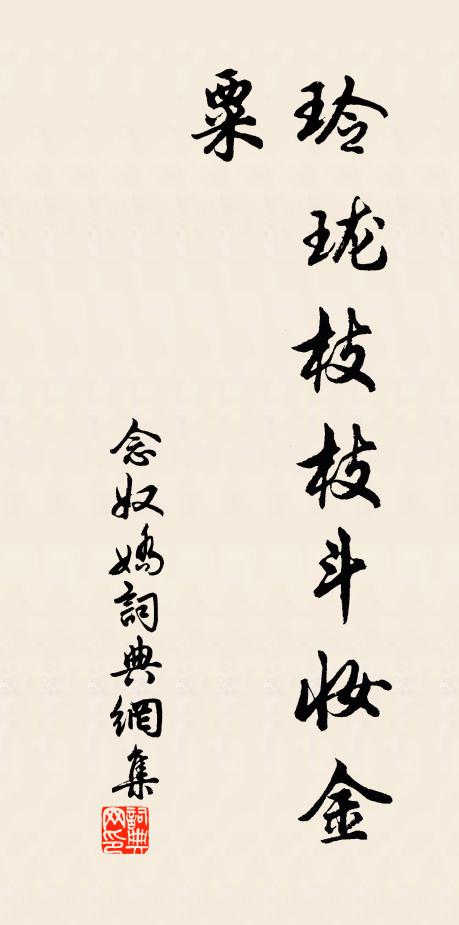 玲珑枝枝斗妆金
粟
念奴嬌詞典網集
詞典网印